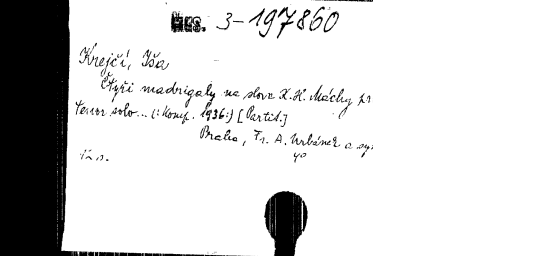 Mus. 3-197860
Krejčí, Iša
Čtyři madrigaly na slova K.H. Máchy pr
tenor solo... (:Komp. 1936:) [Partit.]
Praha, Fr. A. Urbánek a sy
40
12 s.